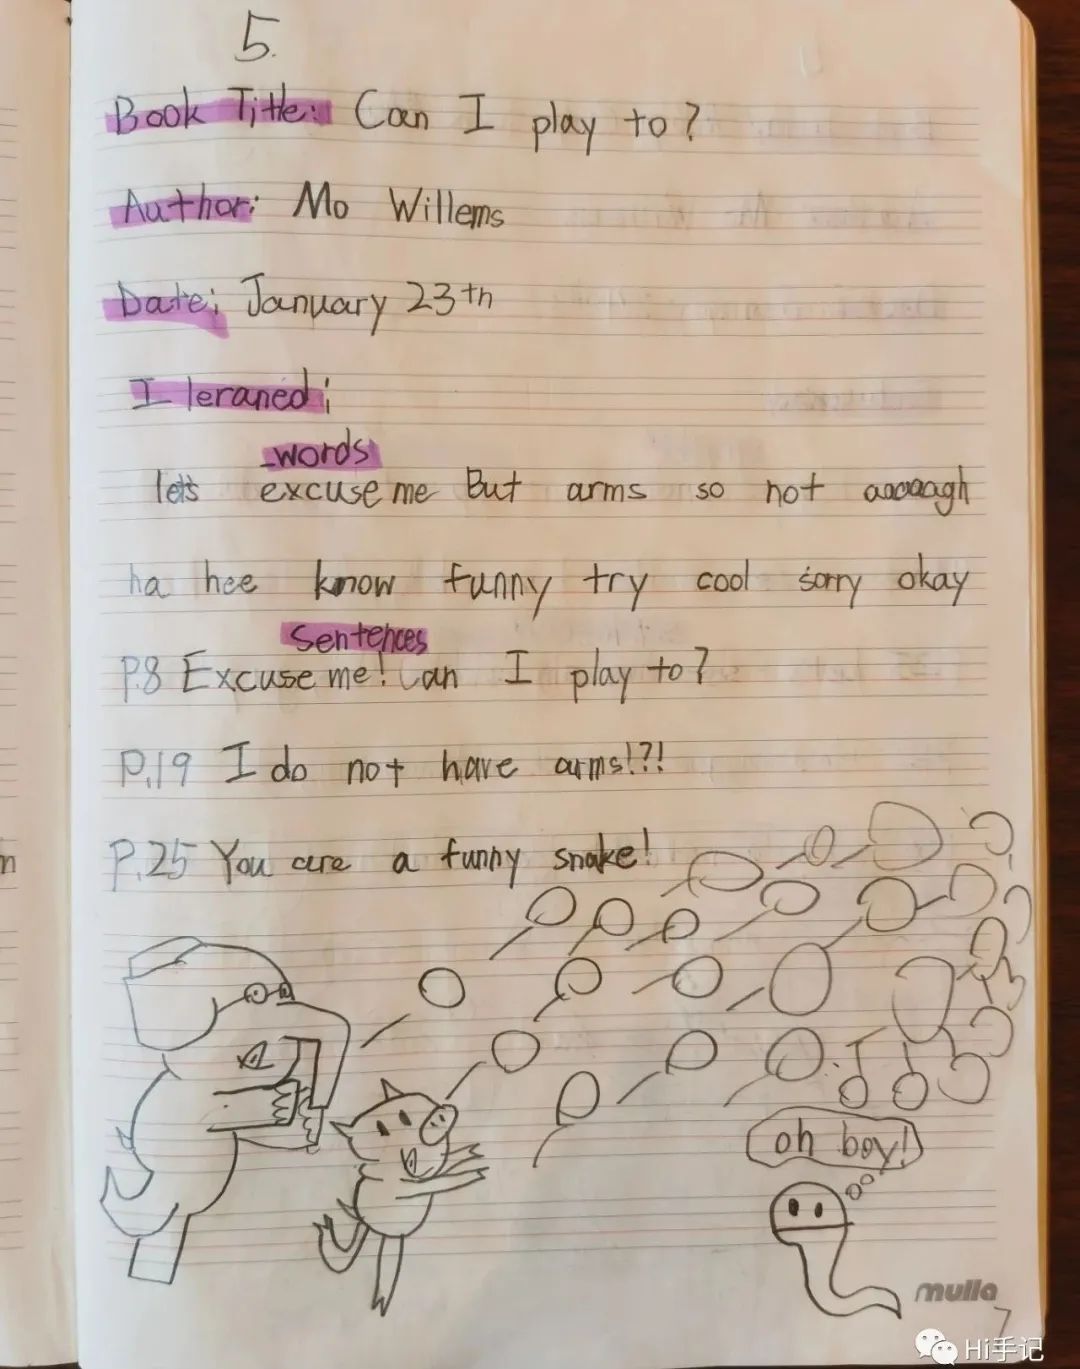 5.
Book Title: Can I play to?
Author: Mo Willems
Date: January 23th
I leraned:
words
let's excuse me But arms so not aaaaagh
ha hee know funny try cool sorry okay
Sentences
P.8 Excuse me! Can I play to?
P.19 I do not have arms!?!
P.25 You are a funny snake!
oh boy!
mulla
7
Hi手记
n